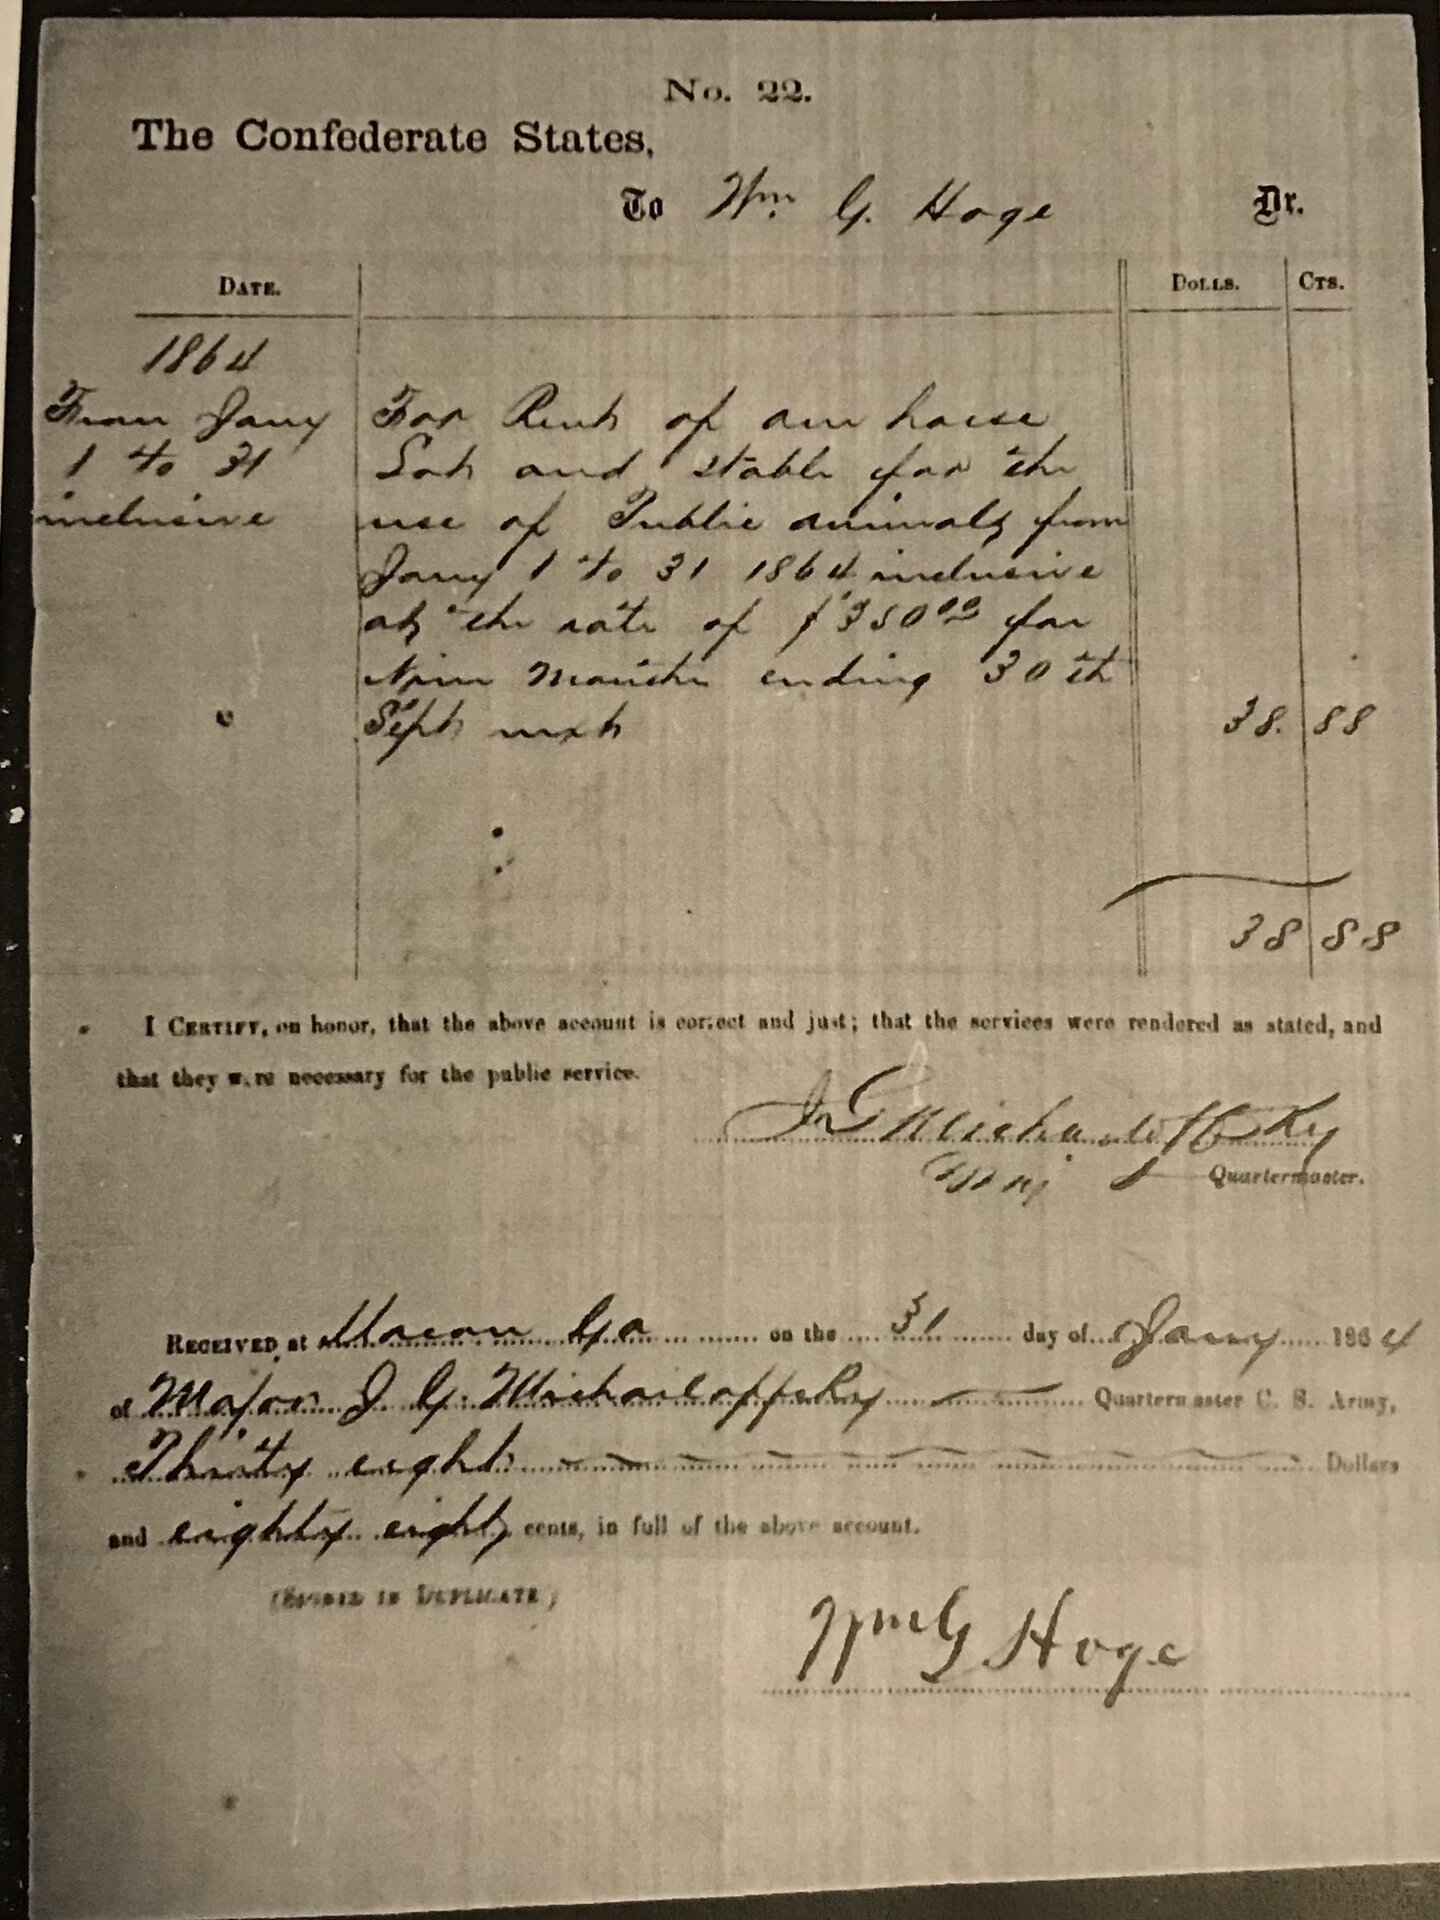 No. 22.
The Confederate States,
To Wm G. Hoge Dr.
DATE. DOLLS. CTS.
1864
From Jany For Rent of one horse
1 to 31 Lot and stable for the
inclusive use of Public animals from
Jany 1 to 31 1864 inclusive
at the rate of $350.00 for
Nine months ending 30th
Sept next 38. 88
38 88
I CERTIFY, on honor, that the above account is correct and just; that the services were rendered as stated, and
that they were necessary for the public service.
J G Michailoffsky
Maj Quartermaster.
RECEIVED at Macon Ga on the 31 day of Jany 1864
of Major J. G. Michailoffsky Quartermaster C. S. Army,
Thirty eight Dollars
and eighty eight cents, in full of the above account.
(SIGNED IN DUPLICATE)
Wm G Hoge